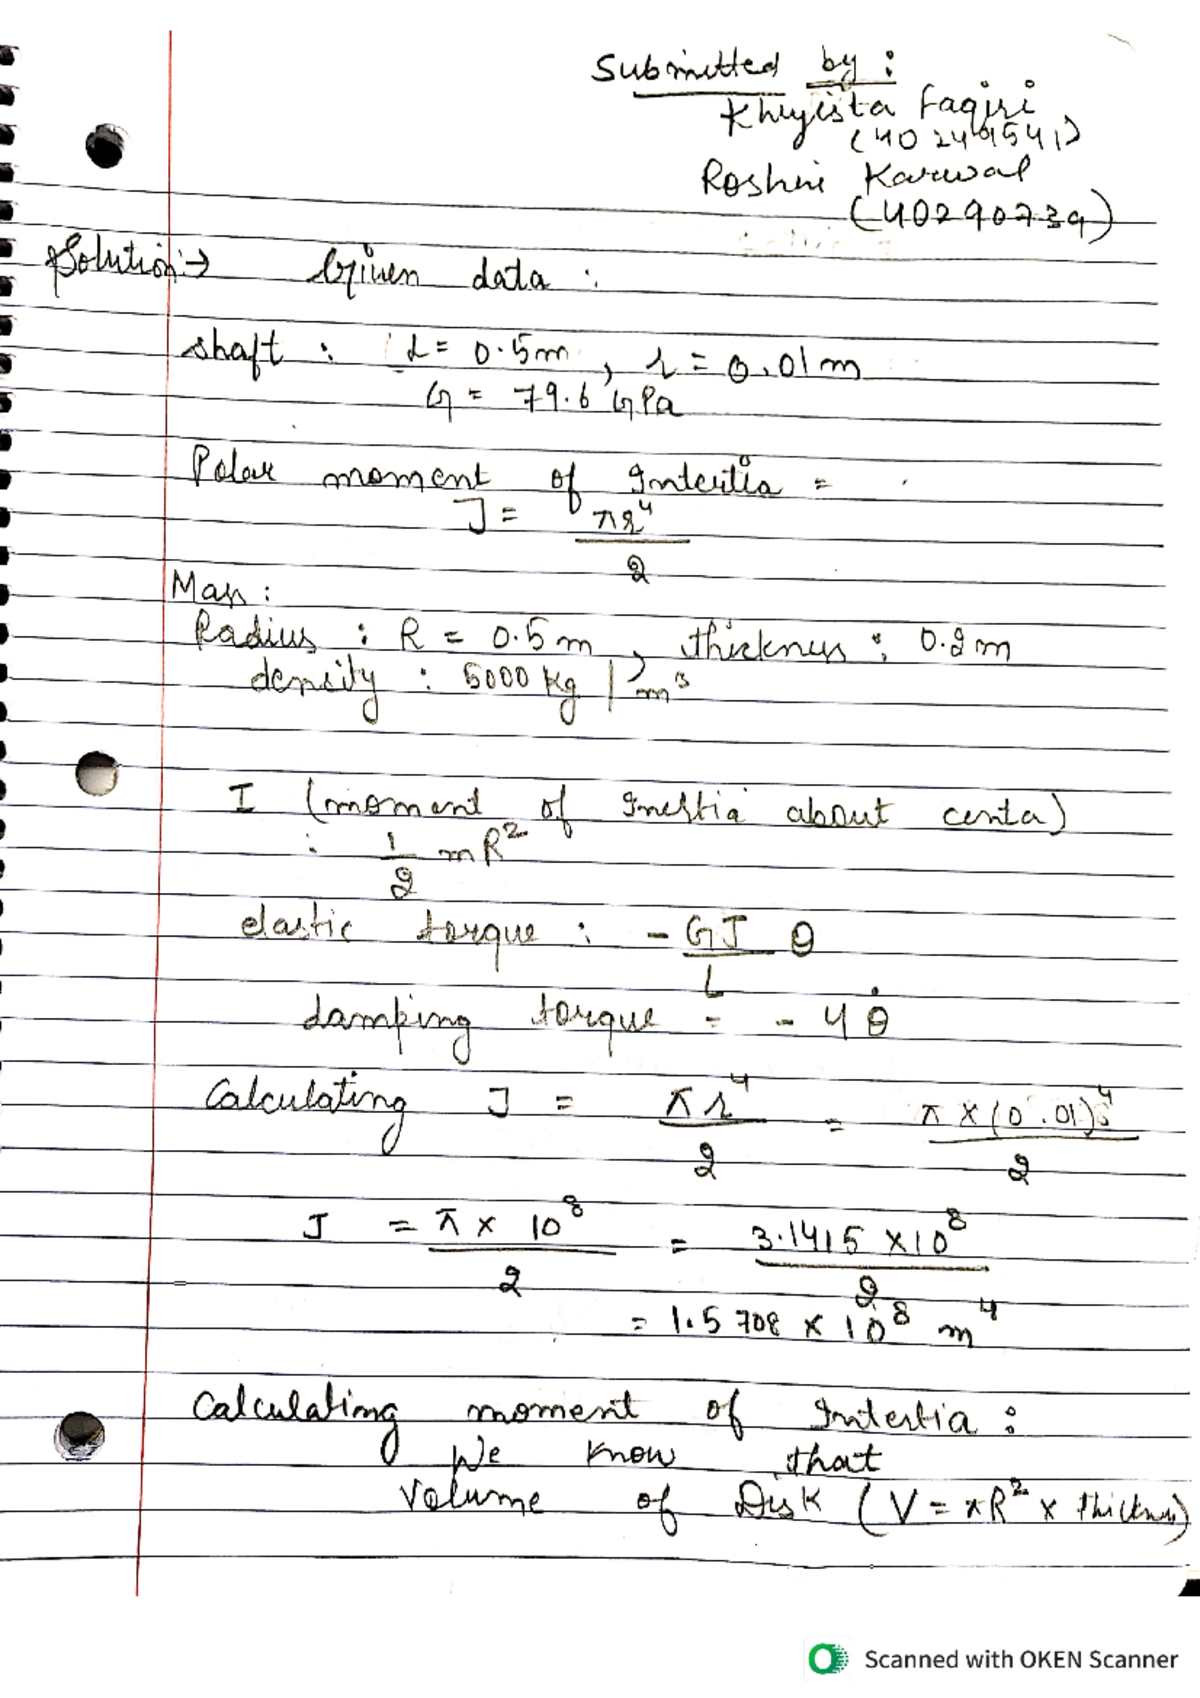 Submitted by :
Khujista Faqiri
(40249541)
Roshni Karwal
(40290739)
Solution:→ Given data :
shaft : L = 0.5m , r = 0.01m
G = 79.6 GPa
Polar moment of Intertia =
J = πr⁴/2
Mass :
Radius : R = 0.5m , thickness : 0.2m
density : 5000 kg / m³
I (moment of Inertia about center)
: 1/2 mR²
elastic torque : - GJ/L θ
damping torque = - 4θ̇
Calculating J = πr⁴/2 = π × (0.01)⁴/2
J = π × 10⁸/2 = 3.1415 × 10⁸/2
= 1.5708 × 10⁸ m⁴
Calculating moment of Intertia :
We know that
Volume of Disk (V = πR² × thickness)
Scanned with OKEN Scanner